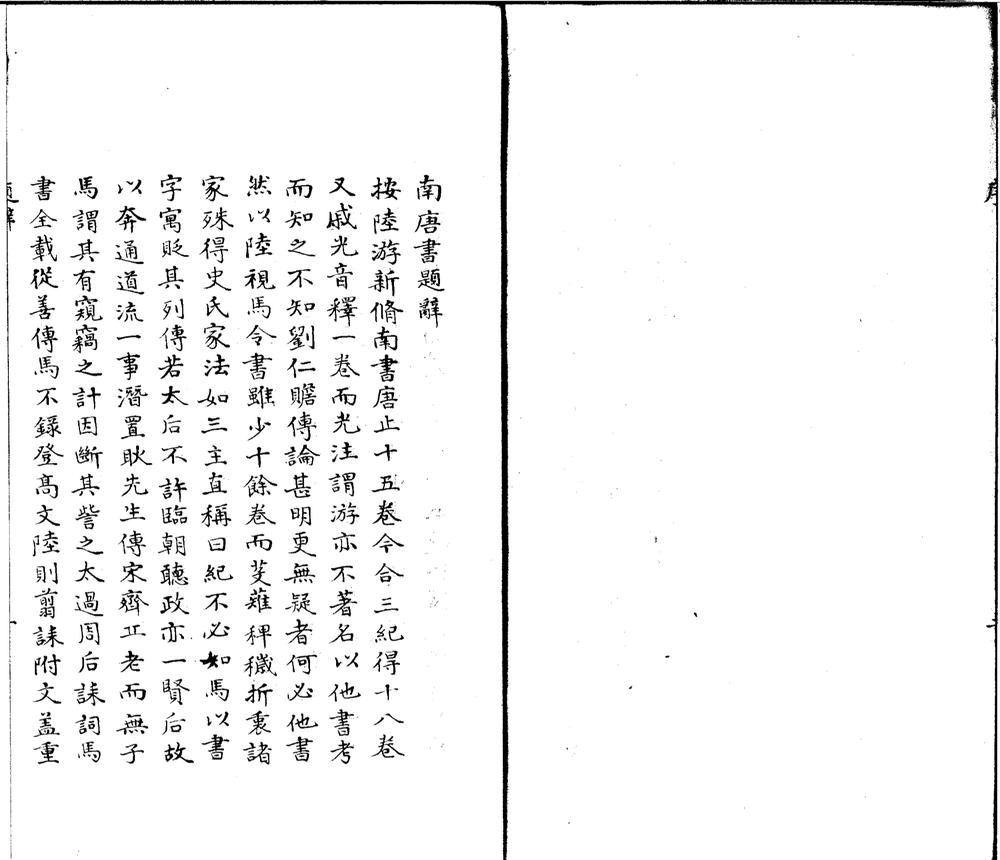 南唐書題辭
按陸游新脩南書唐止十五卷今合三紀得十八卷
又戚光音釋一卷而光注謂游亦不著名以他書考
而知之不知劉仁贍傳論甚明更無疑者何必他書
然以陸視馬令書雖少十餘卷而芟薙稗穢折衷諸
家殊得史氏家法如三主直稱曰紀不必如馬以書
字寓貶其列傳若太后不許臨朝聽政亦一賢后故
以奔通道流一事潛置耿先生傳宋齊丘老而無子
馬謂其有窺竊之計因斷其訾之太過周后誄詞馬
書全載從善傳馬不錄登高文陸則翦誄附文蓋重
題辭
一